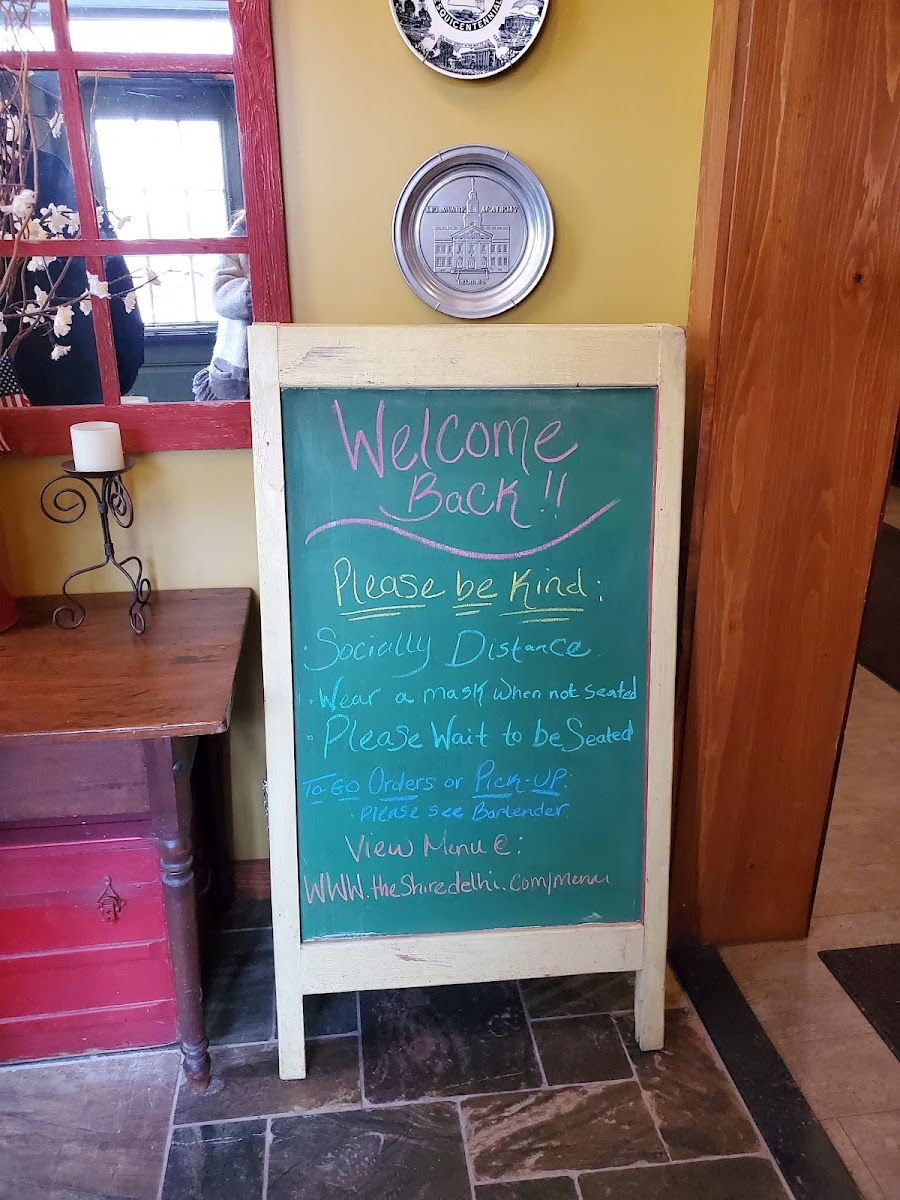 SQUICENTENNIAL
DELAWARE ACADEMY
Welcome
Back!!
Please be Kind:
· Socially Distance.
· Wear a mask when not seated
· Please Wait to be Seated
To-Go Orders or Pick-UP:
· Please see Bartender
View Menu @:
WWW.theShiredelhi.com/menu